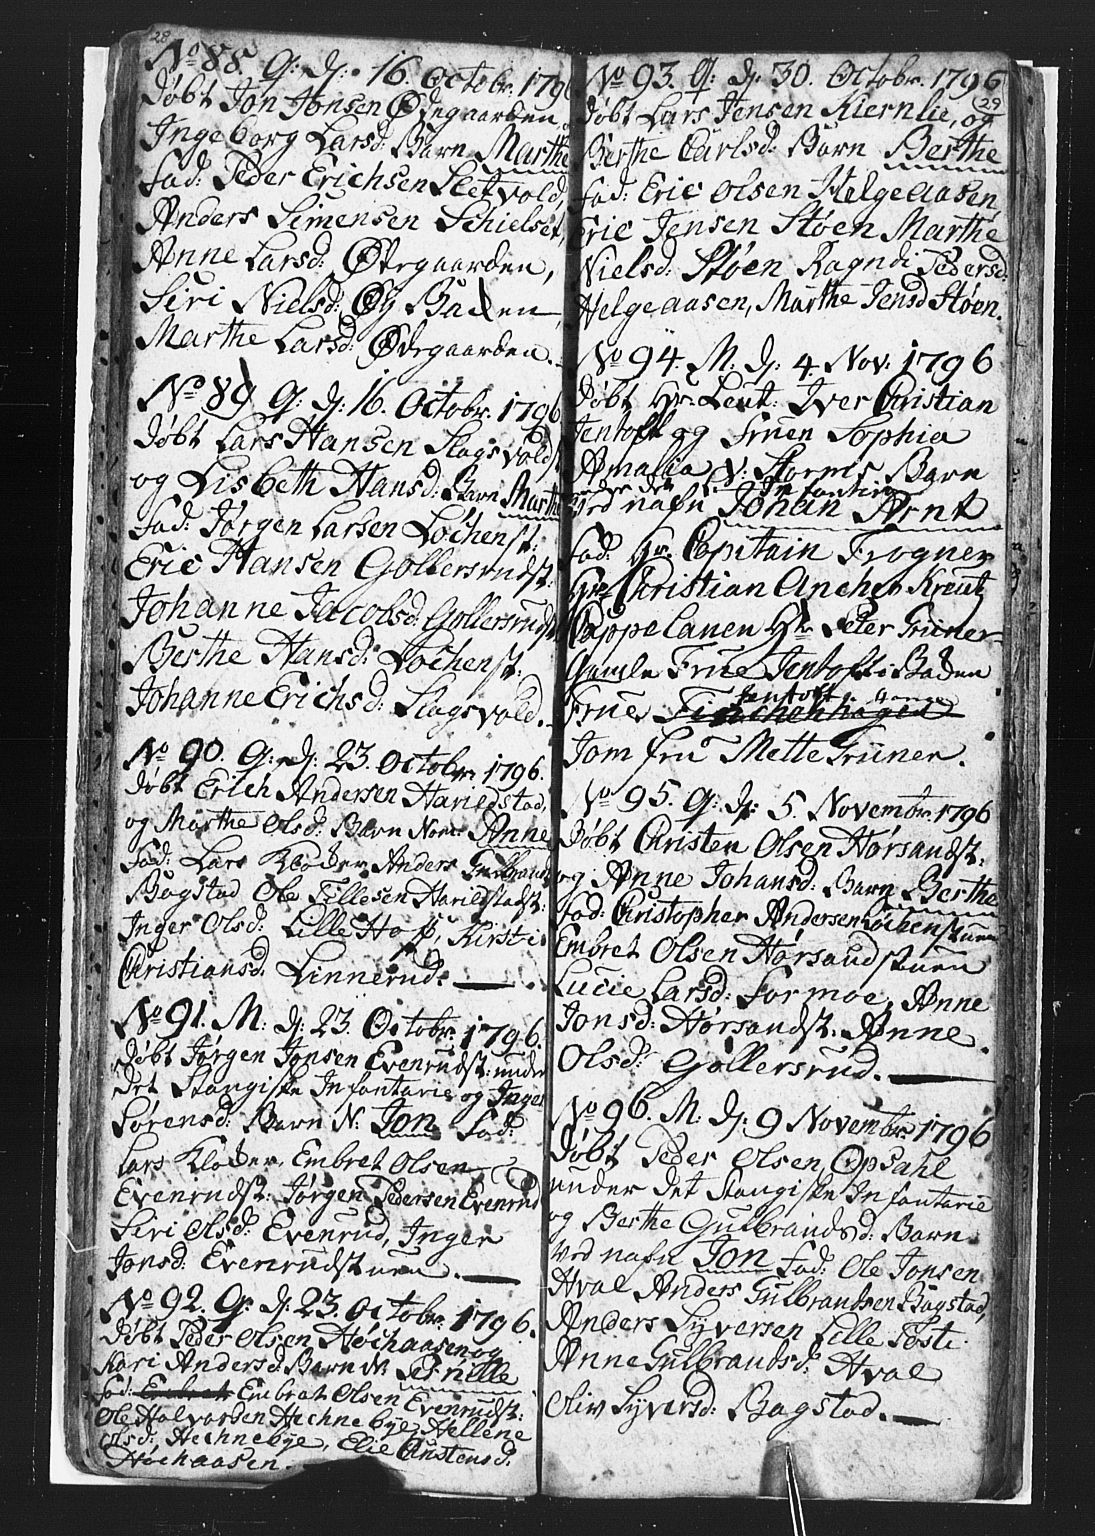 28
No 88 G: d: 16. Octobr. 1796
døbt Jon Jonsen Ødegaarden,
Ingeborg Larsd: Barn Marthe
fad: Peder Erichsen Sletvold,
Anders Simensen Schielset,
Anne Larsd: Ødegaarden,
Siri Nielsd: Øy Baden,
Marthe Larsd: Ødegaarden.
No 89 G: d: 16. Octobr. 1796
døbt Lars Hansen Slagsvold
og Lisbeth Hansd: Barn Marthe
fad: Jørgen Larsen Løchenst:
Eric Hansen Gollersrudst:
Johanne Jacobsd: Gollersrudst
Berthe Hansd: Løchenst:
Johanne Erichsd: Slagsvold.
No 90. G: d: 23. Octobr. 1796.
døbt Erich Andersen Harildstad,
og Marthe Olsd: Barn Nom: Anne
fad: Lars Kloder, Anders Gulbrands
Bagstad Ole Tillesen Harildstadst:
Inger Olsd: Lille Hof, Kirsti
Christiansd: Linnerud.
No 91. M: d: 23. Octobr. 1796.
døbt Jørgen Jonsen Evenrudst: under
det Stangiske Infantarie og Inger
Sørensd: Barn N: Jon fad:
Lars Kloder, Embret Olsen
Evenrudst: Jørgen Pedersen Evenrud
Siri Olsd: Evenrud, Inger
Jonsd: Evenrudstuen.
No 92. G: d: 23. Octobr. 1796.
døbt Peder Olsen Høchaasen og
Kari Andersd: Barn N: Pernille
fad: Embret Embret Olsen Evenrudst:
Ole Halvorsen Hechnebye, Hellene
Olsd: Hechnebye, Elie Austensd:
Høchaasen.
No 93. G: d: 30. Octobr. 1796
29
døbt Lars Jensen Kiernlie, og
Berthe Carlsd: Barn Berthe
fad: Eric Olsen Helgeaasen,
Eric Jensen Støen Marthe
Nielsd: Støen Ragndi Pedersd:
Helgeaasen, Marthe Jensd Støen.
No 94. M. d: 4 Nov: 1796
døbt Hr. Leut: Iver Christian
Jentoft og Fruen Sophia
Amalia v: Storms Barn
ved nafn Johan Arnt
fad: Hr. Capitain Frogner
Hr. Christian Ancher Kreutz
Cappelanen Hr. Peter Grüner
Gamle Frue Jentoft i Baden
Frue Jentoft
Jomfru Mette Grüner.
No 95. G: d: 5. Novembr. 1796
døbt Christen Olsen Horsandst:
og Anne Johansd: Barn Berthe
fad: Christopher Andersen Løchenstuen
Embret Olsen Horsandstuen
Lucie Larsd: Formoe, Anne
Jonsd: Horsandst: Anne
Olsd: Gollersrud.
No 96. M. d: 9 Novembr. 1796
døbt Peder Olsen Opsahl
under det Stangiske Infantarie
og Berthe Gulbrandsd: Barn
ved nafn Jon fad: Ole Jonsen
Hval Anders Gulbrandsen Bagstad,
Anders Syversen Lille Foste
Anne Gulbrandsd: Hval
Oliv Syversd: Bagstad.